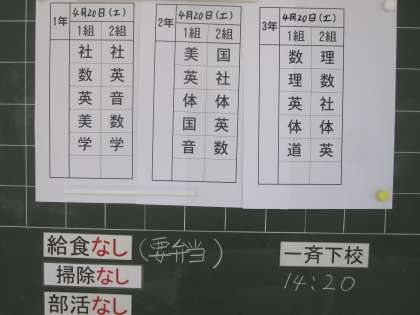 1年 4月20日(土)
1組 2組
社 社
数 英
英 音
美 数
学 学
2年 4月20日(土)
1組 2組
美 国
英 社
体 体
国 英
音 数
3年 4月20日(土)
1組 2組
数 理
理 数
英 社
体 体
道 英
給食なし (要弁当)
掃除なし
部活なし
一斉下校
14:20